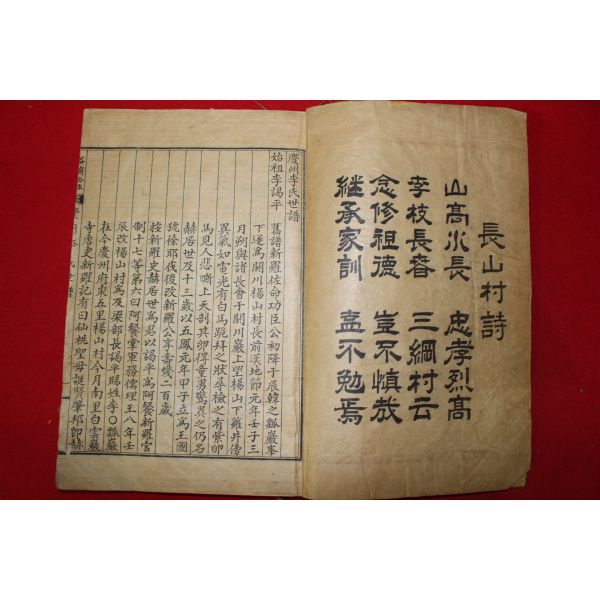 長山村詩
山高水長 忠孝烈高
李枝長春 三綱村云
念修祖德 豈不慎哉
継承家訓 盍不勉焉
慶州李氏世譜
始祖李謁平
舊譜新羅佐命功臣公初降于辰韓之瓢巖峯
下遂爲閼川楊山村長前漢地節元年壬子三
月朔與諸長會于閼川巖上望楊山下蘿井傍
異氣如電光有白馬跪拜之狀尋檢之有紫卵
馬見人悲嘶上天剖其卵得童男驚異之仍名
赫居世及十三歲以五鳳元年甲子立爲王國
號徐耶伐後改新羅公享壽嵗二百歲
按新羅史赫居世爲君以謁平爲阿餐新羅官
制十七等第六曰阿餐掌軍務儒理王八年壬
辰改楊山村爲及梁部長謁平賜姓李○瓢巖
在今慶州府東五里楊山村今月南里白雲巖
寺唐史新羅記有曰仙桃聖母誕賢肇邦即赫